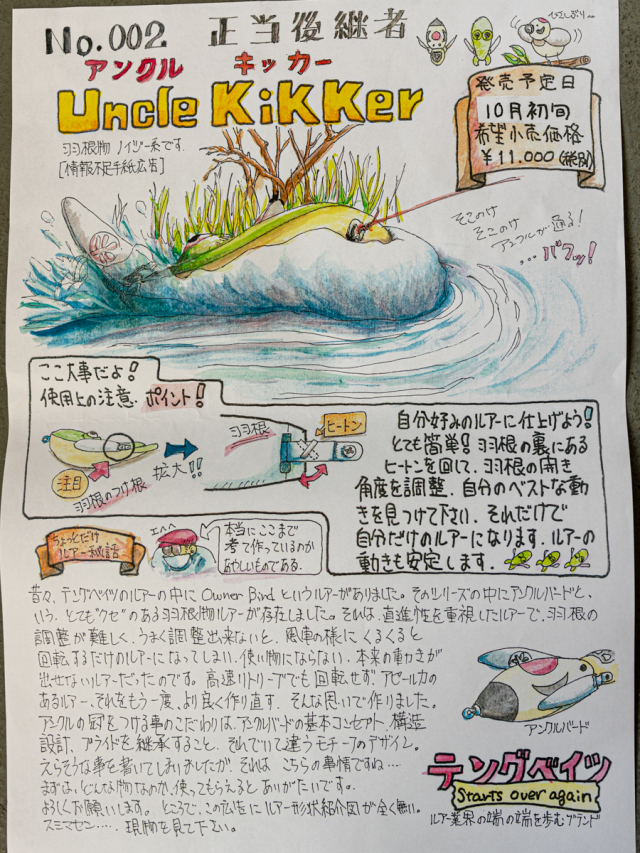 No.002 正当後継者
ひさしぶり…
アンクル キッカー
Uncle KiKKer
羽根物 ノイジー系です。
[情報不足手紙広告]
発売予定日
10月初旬
希望小売価格
¥11.000(税別)
そこのけ
そこのけ
アンクルが通る!
…バクッ!
ここ大事だよ!
使用上の注意.ポイント!
注目
羽根のつけ根
拡大!!
羽根
ヒートン
自分好みのルアーに仕上げよう!
とても簡単!羽根の裏にある
ヒートンを回して.羽根の開き
角度を調整.自分のベストな動
きを見つけて下さい.それだけで
自分だけのルアーになります.ルアーの
動きも安定します.
ちょっとだけ
ルアー秘話
エヘヘ
本当にここまで
考て作っているのか
あやしいものである.
昔々、テングベイツのルアーの中にOwner Birdというルアーがありました。そのシリーズの中にアンクルバードと、
いう、とても"クセ"のある羽根物ルアーが存在しました。それは、直進性を重視したルアーで、羽根の
調整が難しく、うまく調整出来ないと、風車の様にくるくると
回転するだけのルアーになってしまい、使い物にならない、本来の動きが
出せないルアーだったのです。高速リトリーブでも回転せず、アピール力の
あるルアー、それをもう一度、より良く作り直す、そんな思いで作りました。
アンクルの冠をつける事のこだわりは、アンクルバードの基本コンセプト、構造
設計、プライドを継承すること、それでいて違うモチーフのデザイン。
えらそうな事を書いてしまいましたが、それは、こちらの事情ですね…
まずは、どんな物なのか、使ってもらえるとありがたいです。
よろしくお願いします。ところで、この広告にルアー形状紹介図が全く無い。
スミマセン……現物を見て下さい。
アンクルバード
テングベイツ
Starts over again
ルアー業界の端の端を歩むブランド